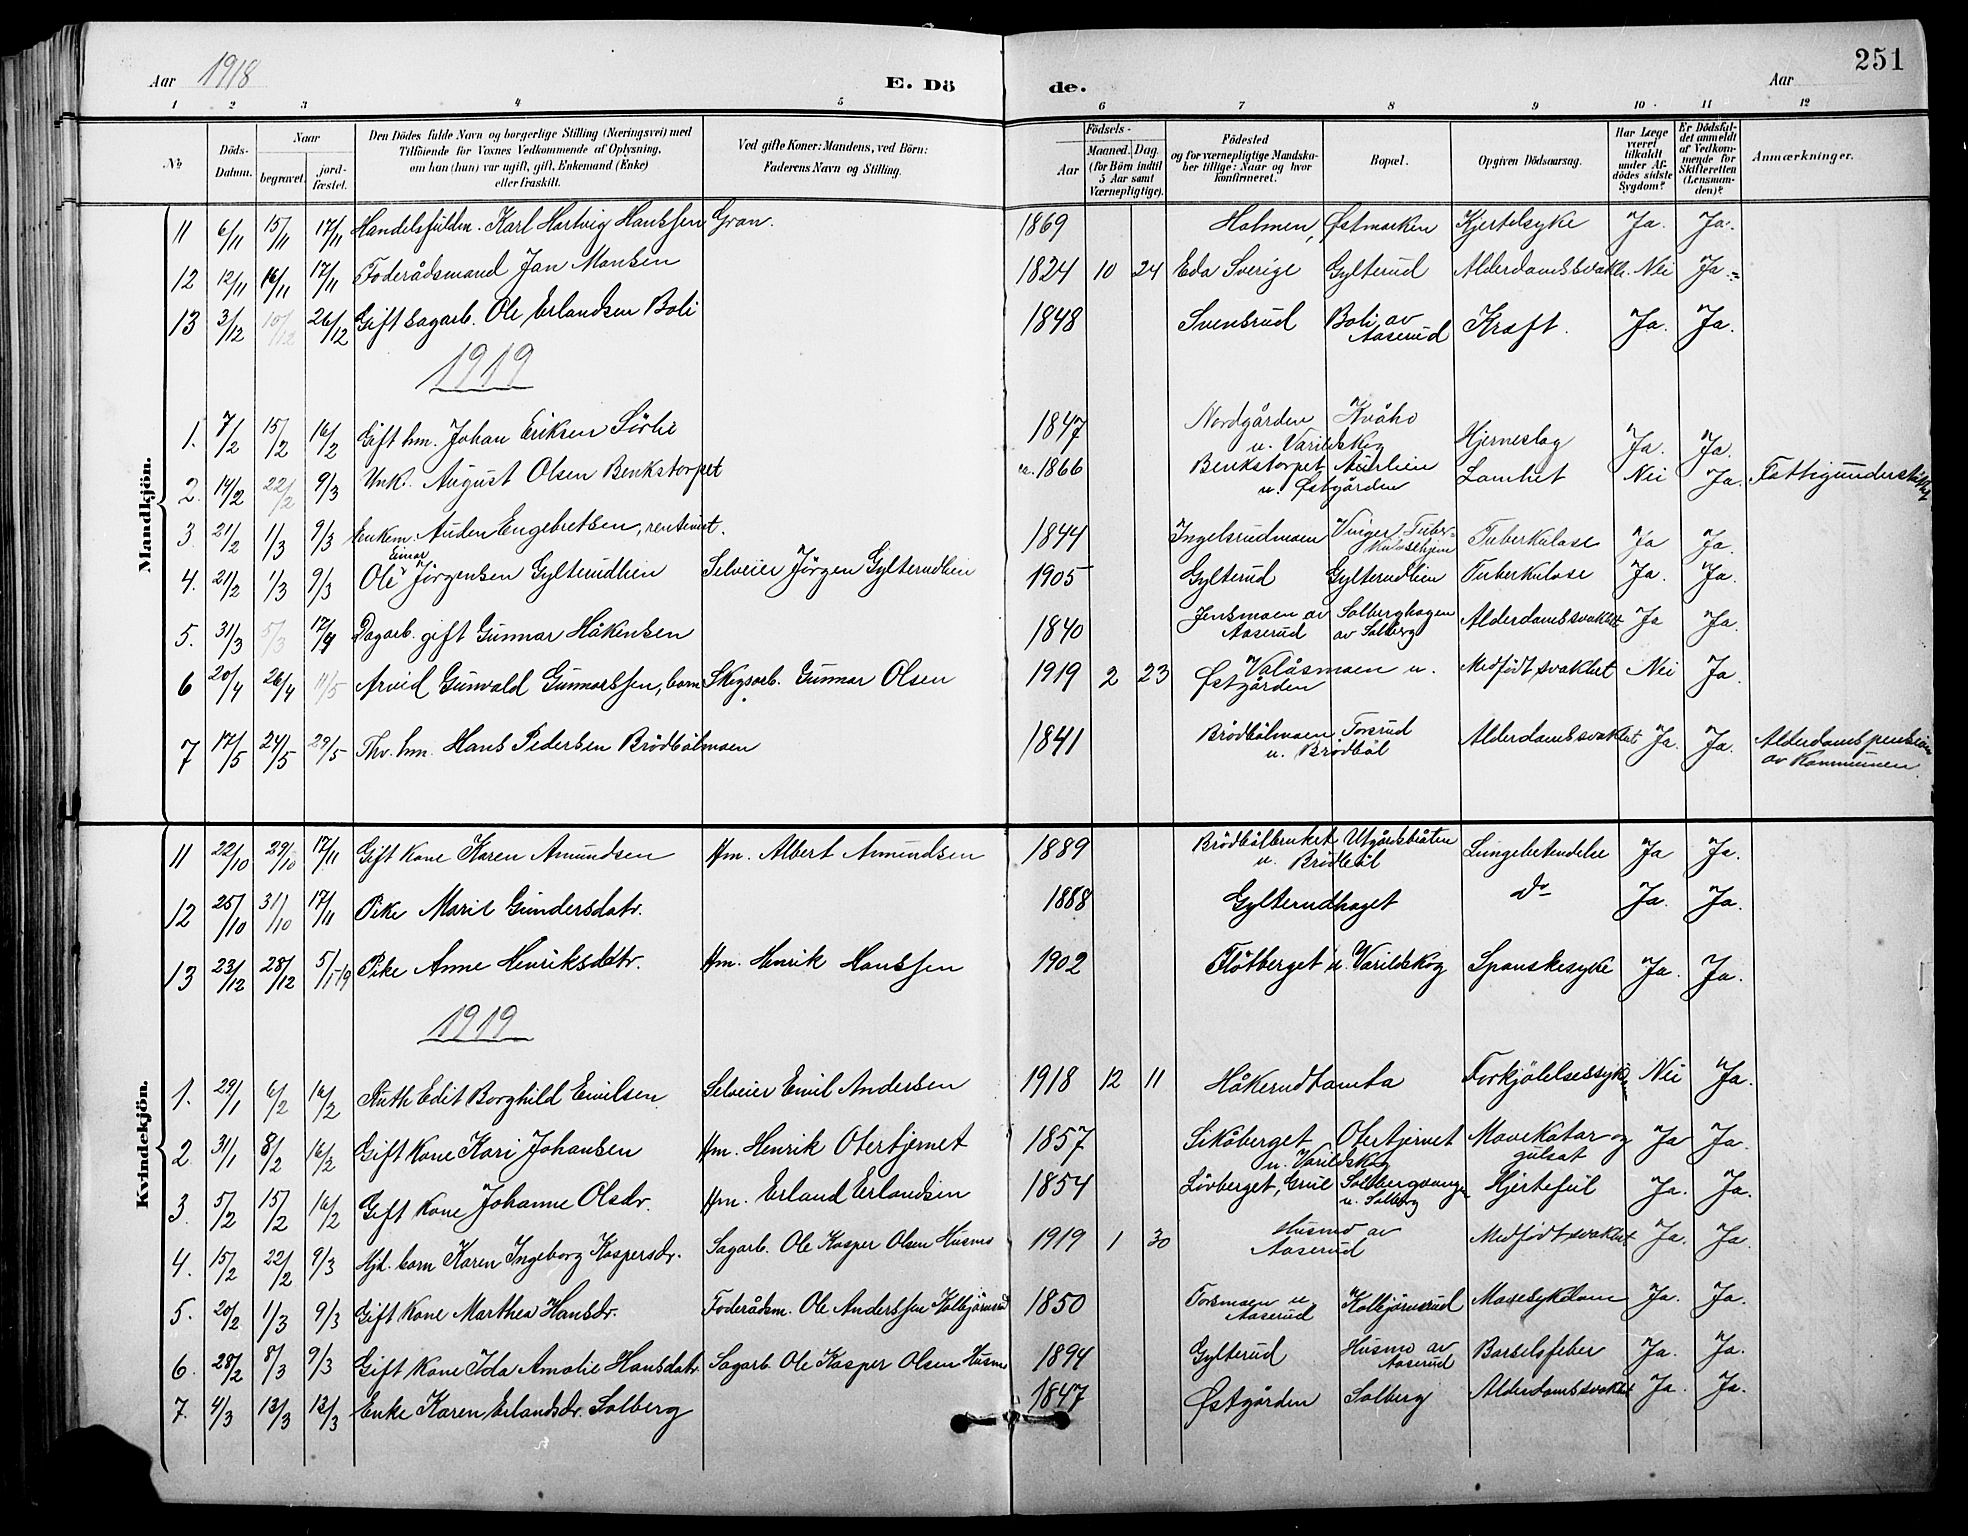 251
Aar 1918 E. Döde. Aar
1 2 3 4 5 6 7 8 9 10 11 12
No
Döds-Datum.
Naar
begravet.
jord-fæstet.
Den Dödes fulde Navn og borgerlige Stilling (Næringsvei) med
Tilföiende for Voxnes Vedkommende af Oplysning,
om han (hun) var ugift, gift, Enkemand (Enke)
eller fraskilt.
Ved gifte Koner: Mandens, ved Börn:
Faderens Navn og Stilling.
Födsels-
Aar
Maaned. Dag.
(for Börn indtil
5 Aar samt
Værnepligtige).
Födested
og for værnepligtige Mandska-
ber tillige: Naar og hvor
konfirmeret.
Bopæl.
Opgiven Dödsaarsag.
Har Læge
været
tilkaldt
under Af-
dödes sidste
Sygdom?
Er Dödsfal-
det anmeldt
af Vedkom-
mende for
Skifteretten
(Lensman-
den)?
Anmærkninger.
Mandkjön.
11 6/11 15/11 17/11 Handelsfuldm. Karl Hartvig Hanssen Gran. 1869 Holmen, Østmarken Kjertelsyke Ja. Ja.
12 12/11 16/11 17/11 Foderådsmand Jan Monsen 1824 10 24 Eda Sverige Gylterud Alderdomssvakh. Nei Ja.
13 3/12 10/12 26/12 Gift sagarb. Ole Erlandsen Boli 1848 Svensrud Boli av Aaserud Kræft. Ja. Ja.
1919
1. 7/2 15/2 16/2 Gift hm. Johan Eriksen Sörli 1847 Nordgården Kvåho u. Varildskog Hjerneslag Ja. Ja.
2. 14/2 22/2 9/3 Unk. August Olsen Benkstorpet 1866 Benkstorpet Aurlien u. Østgården Lamhet Nei Ja. Fattigunderstöttet
3 21/2 1/3 9/3 Enkem. Auden Engebretsen, rentenist. 1844 Ingelsrudmoen Vinger Tuber-kulosehjem Tuberkulose Ja Ja.
4. 21/2 1/3 9/3 Ole Einar Jörgensen Gylterudlien Selveier Jörgen Gylterudlien 1905 Gylterud Gylterudlien Tuberkulose Ja. Ja.
5. 31/3 5/3 12/4 Dagarb. gift Gunnar Håkensen 1840 Jensmoen av Aaserud Solberghagen av Solberg Alderdomssvakhet Ja Ja.
6 20/4 26/4 11/5 Arvid Gunvald Gunnarssen, barn Skogsarb. Gunnar Olsen 1919 2 23 Valåsmoen u. Østgården Medfödt svakhet Nei Ja.
7 17/5 24/5 29/5 Fhv. hm. Hans Pedersen Brödbölmoen 1841 Brödbölmoen u. Brödböl Torsrud Alderdomssvakhet Ja. Ja. Alderdomspension av Kommunen.
Kvindekjön.
11 22/10 29/10 17/11 Gift Kone Karen Amundsen Hm. Albert Amundsen 1889 Brödbölbruket Utgårdsbråten u. Brödböl Lungebetendelse Ja Ja.
12 25/10 31/10 17/11 Pike Marie Gundersdatr. 1888 Gylterudhaget do Ja. Ja.
13 23/12 28/12 5/1 19 Pike Anne Henriksdatr. Hm. Henrik Hanssen 1902 Flötberget u. Varildskog Spanskesyke Ja. Ja.
1919
1. 29/1 6/2 16/2 Ruth Edit Borghild Emilsen Selveier Emil Andersen 1918 12 11 Håkerudtomta Forkjölelsessyke Nei Ja.
2 31/1 8/2 16/2 Gift Kone Kari Johansen Hm. Henrik Otertjernet 1857 Sikåberget Otertjernet u. Varildskog Mavekatar og gulsot Ja Ja.
3. 5/2 15/2 16/2 Gift Kone Johanne Olsdr. Hm. Erland Erlandsen 1854 Lövberget, Grue Solbergvangen u. Solberg Hjertefeil Ja. Ja.
4. 15/2 22/2 9/3 Hjd. barn Karen Ingeborg Kaspersdr. Sagarb. Ole Kasper Olsen Husmo 1919 1 30 Husmo av Aaserud Medfödt svakhet Ja. Ja.
5. 20/2 1/3 9/3 Gift Kone Marthea Hansdr. Foderådsm. Ole Anderssen Kolbjörnsrud 1850 Torsmoen u. Aaserud Kolbjörnsrud Mavesykdom Ja. Ja.
6. 28/2 8/3 9/3 Gift Kone Ida Amalie Hansdatr. Sagarb. Ole Kasper Olsen Husmo 1894 Gylterud Husmo av Aaserud Barselsfeber Ja. Ja.
7. 4/3 13/3 13/3 Enke Karen Erlandsdr. Solberg 1847 Østgården Solberg Alderdomssvakhet Ja. Ja.